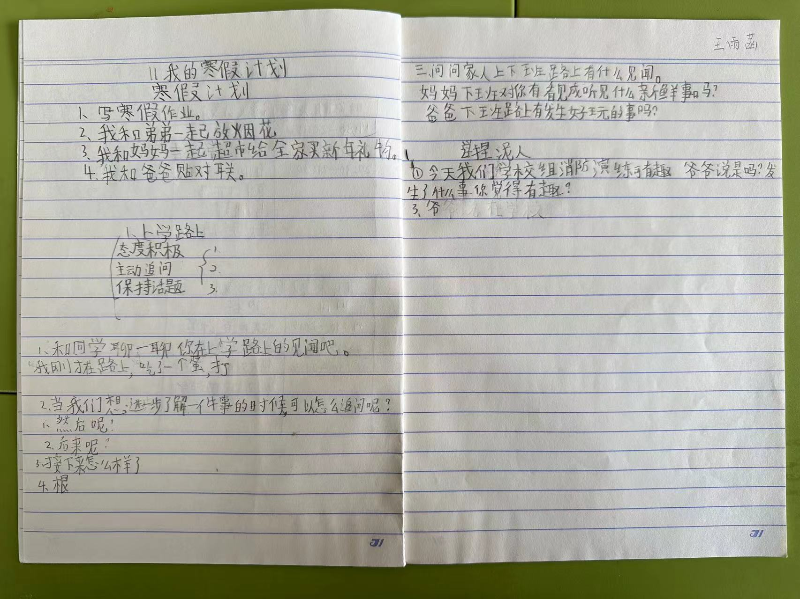 11.我的寒假计划
寒假计划
1、写寒假作业。
2、我和弟弟一起放烟花
3、我和妈妈一起超市给全家买新年礼物。
4、我和爸爸贴对联。
1、上学路上
态度积极 1.
主动追问 2.
保持话题 3.
1、和同学聊一聊你在上学路上的见闻吧。
我刚才在路上,吃了一个蛋,打
2.当我们想进一步了解一件事的时候,可以怎么追问呢?
1.然后呢?
2.后来呢?
3.接下来怎么样了
4.根
王雨菡
三.问问家人上下班路上有什么见闻。
妈妈下班对你有看见或听见什么新鲜事吗?
爸爸下班路上有发生好玩的事吗?
捏泥人
今天我们学校组消防演练有趣 爷爷说是吗?发
生了什么事你觉得有趣?
3、爷